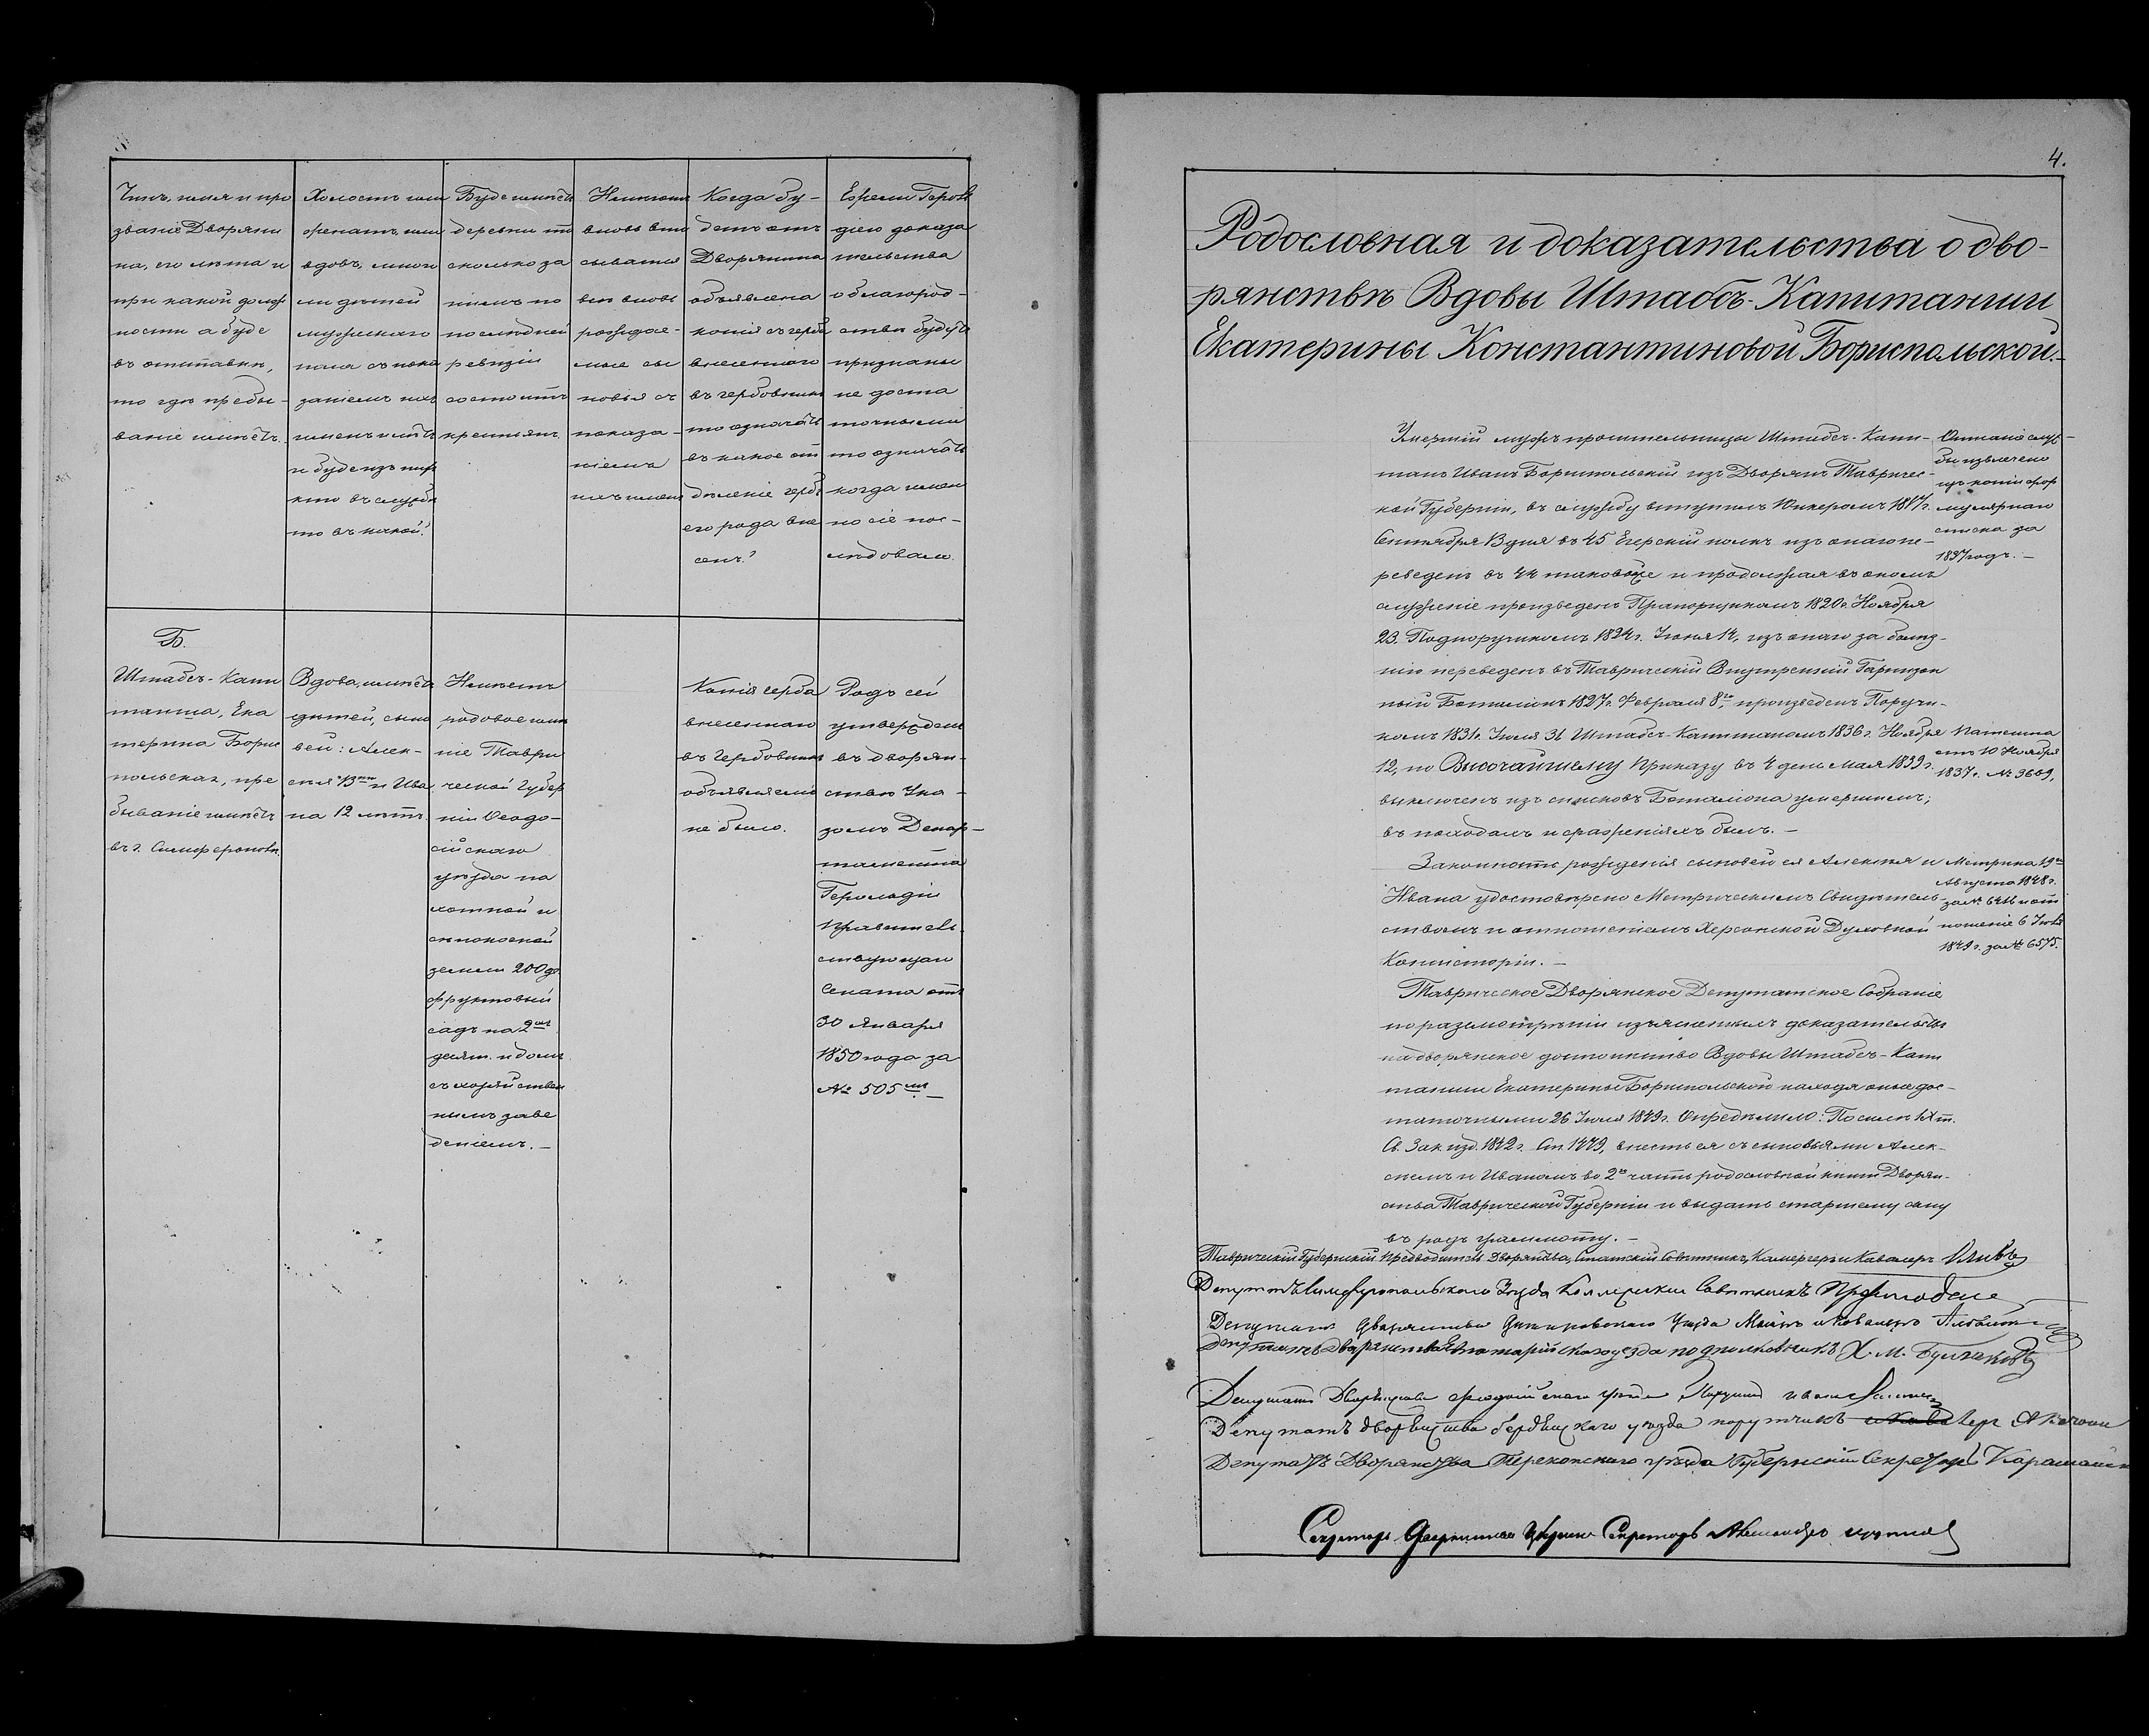 Чинъ, имя и про
званіе Дворяни
на, его лѣта и
при какой долж
ности а буде
въ отставкѣ,
то гдѣ пребы-
ваніе имѣетъ.
Холостъ или
женатъ, или
вдовъ, много
ли дѣтей
мужескаго
пола съ пока
заніемъ ихъ
именъ и лѣтъ
и буде изъ нихъ
кто въ службѣ
то въ какой?
Буде имѣетъ
деревни то
сколько за
нимъ по
послѣдней
ревизіи
состоитъ
крестьянъ.
Неимѣютъ
вновь впи
сываться
внѣ вновь
рождае-
мые сы
новья съ
показа-
ніемъ
ихъ имен
Когда бу-
детъ отъ
Дворянина
объявлена
копія съ герба
внесеннаго
въ гербовникъ
то означать
въ какое от
дѣленіе гербъ
его рода вне
сенъ?
Ежели Героль
діею доказа
тельства
о благород-
ствѣ будутъ
признаны
не доста
точными
то означать
когда имен
но сіе пос-
лѣдовало.
Б.
Штабсъ-Капи
танша, Ека
терина Борис
польская, пре
бываніе имѣетъ
въ г. Симферополѣ.
Вдова, имѣетъ
дѣтей, сыно
вей: Алек-
сѣя 13ти и Ива
на 12 лѣтъ
Имѣетъ
родовое имѣ
ніе Таври
ческой Губер
ніи Ѳеодо-
сійскаго
уѣзда па
хотной и
сѣнокосной
земли 200 дѣ
фруктовый
садъ на 2хъ
десят. и домъ
съ хозяйствен
нымъ заве
деніемъ. —
Копія герба
внесеннаго
въ Гербовникъ
объявляемо
не было.
Родъ сей
утвержденъ
въ дворян-
ствѣ Ука-
зомъ Депар-
тамента
Герольдіи
Правитель
ствующаго
Сената отъ
30 Января
1850 года за
№ 505мъ —
4.
Родословная и доказательства о дво-
рянствѣ Вдовы Штабсъ-Капитанши
Екатерины Константиновой Бориспольской. —
Умершій мужъ просительницы Штабсъ-Капи-
танъ Иванъ Бориспольскій изъ Дворянъ Тавричес-
кой Губерніи, въ службу вступилъ Юнкеромъ 1817 г.
Сентября 13 дня въ 45 Егерскій полкъ изъ онаго пе-
реведенъ въ 44 таковойже и продолжая въ ономъ
служеніе произведенъ Прапорщикомъ 1820 г. Ноября
23. Подпоручикомъ 1824 г. Іюня 14, изъ онаго за болѣз-
нію переведенъ въ Таврическій Внутренній Гарнизон
ный Баталіонъ 1827 г. Февраля 8го, произведенъ Поручи-
комъ 1831 г. Іюля 31 Штабсъ-Капитаномъ 1836 г. Ноября
12, по Высочайшему Приказу въ 4 день Мая 1839 г.
выключенъ изъ списковъ Баталіона умершимъ;
въ походахъ и сраженіяхъ былъ. —
Описаніе служ-
бы извлечено
изъ копіи фор
мулярнаго
списка за
1837 годъ. —
Патента
отъ 10 Ноября
1837 г. № 3609,
Законность рожденія сыновей ея Алексѣя и
Ивана удостовѣрено Метрическимъ Свидѣтель-
ствомъ и отношеніемъ Херсонской Духовной
Консисторіи. —
Метрика 19го
Августа 1848 г.
за № 6411 и от
ношеніе 6 Іюля
1849 г. за № 6575.
Таврическое Дворянское Депутатское Собраніе
по разсмотрѣніи изъясненныхъ доказательствъ
на дворянское достоинство Вдовы Штабсъ-Капи
танши Екатерины Бориспольской находя оныя дос-
таточными 26 Іюля 1849 г. Опредѣлило: По силѣ IX т.
Св. Зак. изд. 1842 г. Ст. 1479, внесть ея съ сыновьями Алек-
сѣемъ и Иваномъ во 2ю часть родословной книги Дворян-
ства Таврической Губерніи и выдать старшему сыну
въ родъ грамоту. —
Таврическій Губернскій Предводитель Дворянства, Статскій Совѣтникъ, Камергеръ и Кавалеръ
Депутатъ Симферопольскаго Уѣзда Коллежскій Совѣтникъ
Депутатъ дворянства Днѣпровскаго Уѣзда Маіоръ и Кавалеръ
Депутатъ дворянства Евпаторійскаго уезда подполковникъ Х. М. Булгаковъ
Депутатъ Дворянства Феодосійскаго уѣзда
Депутатъ дворянства бердянскаго уѣзда поручикъ
Депутатъ Дворянства Перекопскаго уѣзда Губернскій Секретарь
Секретарь Дворянства